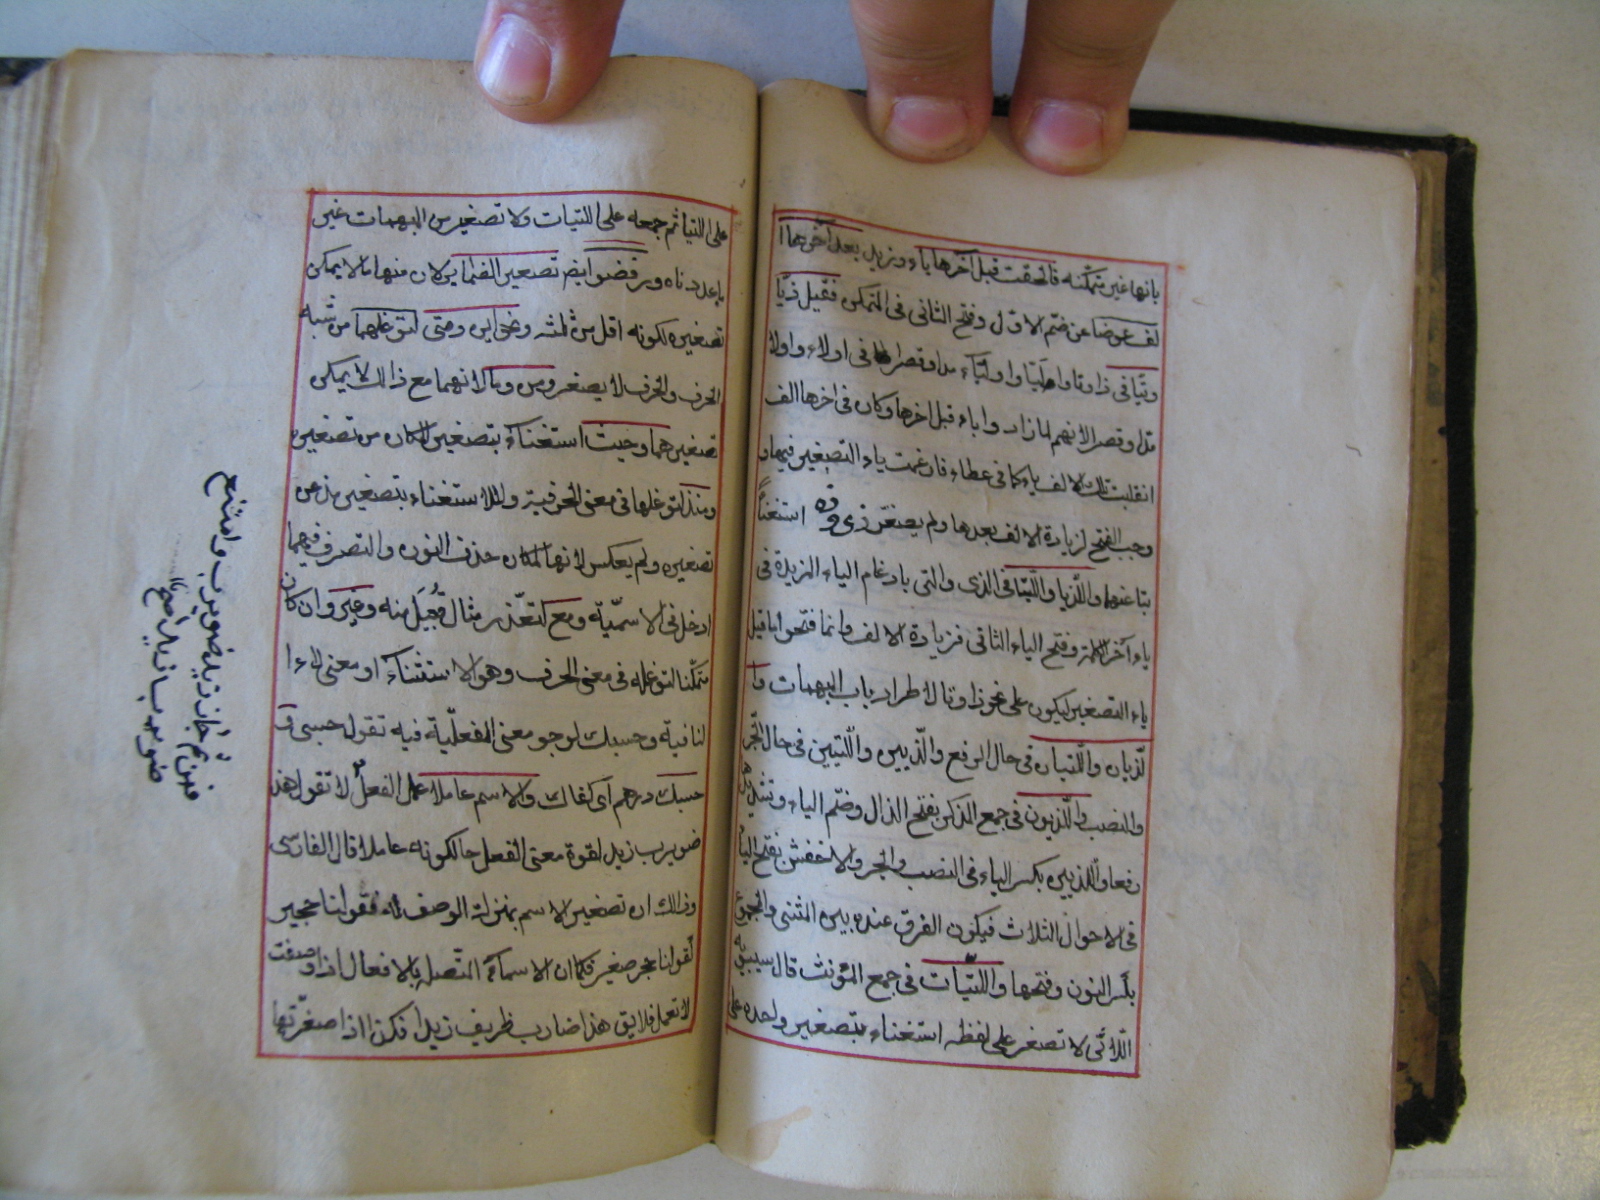 بانها غير متمكنه فالحقت قبل آخرها ياء وزيد بعد آخرهما ا
لف عوضا عن ضم الاول وفتح الثانى فى المتمكن فقيل ذيّا
وتيّا فى ذا وتا واولَيّا واوليّاء مدا وقصرا فى اولاء واولا
مدا وقصر الانهم لما زادوا ياء قبل اخرها وكان فى اخرها الف
انقلبت تلك الالف ياء كما فى عطاء فادغمت ياء التصغير فيها و
وجب الفتح لزيادة الالف بعدها ولم يصغر ذى وذه استغناً
بتا عنهما واللّذيا واللّتيا فى الذى والتى بادغام الياء المزيدة فى
ياء آخر الكلمة وفتح الياء الثانى فزيادة الالف وانما فتحوا ما قبل
ياء التصغير ليكون على نحو ذا وتا لاطراد باب المبهمات وا
لّذيان واللّتيان فى حال الرفع والّذيين واللّتيين فى حال الجّر
والنصب والّذيون فى جمع المذكر بفتح الذال وضّم الياء وتشديدها
رفعا والّلذيين بكسر الياء فى النصب والجر والاخفش بفتح الياء
فى الاحوال الثلاث فيكون الفرق عنده بين المثنى والمجموع
بكسر النون وفتحها واللتيّات فى جمع المؤنث قال سيبويه
اللّاتى لا تصغر على لفظه استغناء بتصغير واحده على
على اللتيا ثم جمعه على اللتيات ولا تصغير من المبهمات غير
ما عددناه ورفضوا ايضا تصغير الضمائر لان منها ما لا يمكن
تصغيره لكونه اقل من ثلثه ونحو اين ومتى لتوغلهما من شبه
الحرف والحرف لا يصغر ومن وما لانهما مع ذالك لا يمكن
تصغيرهما وحيث استغناء بتصغير المكان من تصغيره
ومنذ لتوغلها فى معنى الحرفية وللاستغناء بتصغير مذ عن
تصغيره ولم يعكس لانها لمكان حذف النون والتصرف فيهما
ادخل فى الاسميّة ومع لتعذر مثال فُعَيل منه وغير وان كان
متمكّنا لتوغله فى معنى الحرف وهو الاستثناء او معنى لاء ا
لنافية وحسبك لوجو معنى الفعلّية فيه تقول حسبى و
حسبك درهم اى كفاك والاسم عاملا عمل الفعل لا تقول هذ
ضويرب زيد لقوة معنى الفعل حالكونه عاملا قال الفارسى
وذالك ان تصغير الاسم بمنزلة الوصف له فقولنا حجير
كقولنا حجر صغير فكما ان الاسماء المتّصله بالافعال اذا وصفت
لا تعمل فلا يق هذا ضارب ظريف زيدا فكذا اذا صغّرتها
ضويرب وامتنع
فمن ثم جاز زيد
ضويرب